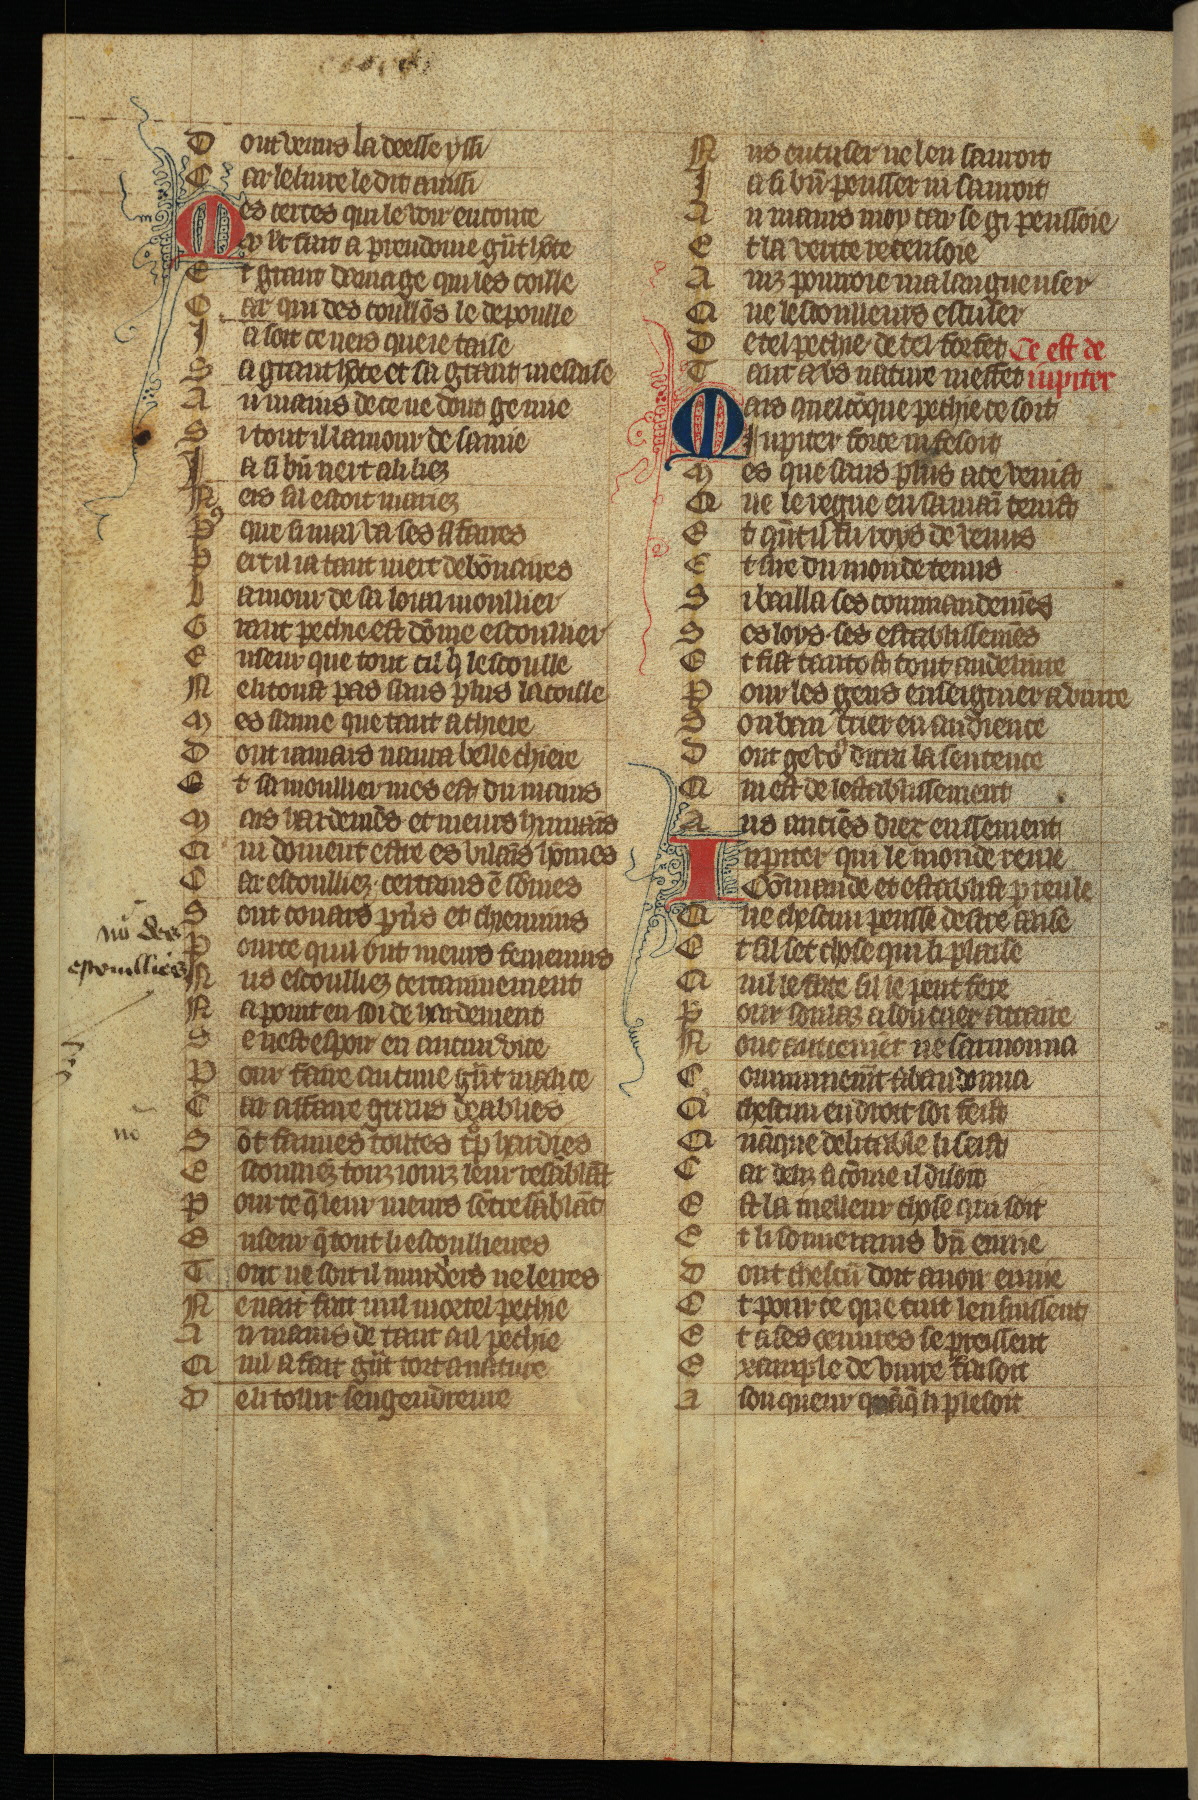 Dont venus la deesse yssi
Car le livre le dit aussi
Mes certes qui le voir en conte
Mlt fait a preudome gñt hõte
Et grant domage qui les coille
Car qui des coullõs le depoulle
Ja soit ce neis que ie taise
Sa grant hõte et sa grant mesaise
Au mains de ce ne dout ge mie
Si tout il lamour de samie
Ja si bñ nert a li liez
Neis sil estoit mariez
Pr que si mal va ses affaires
Pert il ia tant niert debõnaires
Lamour de sa loial moullier
Grant pechie est dõme escoullier
Enseur que tout cil q̃ lescoulle
Ne li toust pas sans plus la coille
Mes samie que tant a chiere
Dont iamais naura belle chiere
Et sa moullier mes est du mains
Mais hardemẽs et meurs humains
Qui doivent estre es vilaĩs hõmes
Car escoulliez certains ẽ sõmes
Sont couars pervs et chenins
Pour ce quil ont meurs femenins
Nus escoulliez certainnement
Na point en soi de hardement
Se nest espoir en aucun vice
Pour faire aucune gñt malice
Car a faire grans deablies
Sõt fames toutes tp̃ hardies
Escoulliez touz iourz leur resẽblãt
Pour ce q̃ leur meurs sẽtresãblãt
Enseur q̃ tout li escoullierres
Tout ne soit il murdrers ne lerres
Ne nait fait nul mortel pechie
Au mains de tant a il pechie
Quil a fait gñt tort a nature
De li tolir sengendreure
nõ des
escoulliés
nõ
Nus encuser ne len sauroit
Ja si bñ pensser ni sauroit
Au mains moy car se gi penssoie
Et la verite recensoie
Ainz pourroie ma langue user
Que lescoulleurs escuser
De tel pechie de tel forfet
Tant a vs nature meffet
Ce est de
iupiter
Mais quelcõque pechie ce soit
Jupiter force ni fesoit
Mes que sans plus a ce venist
Que le regne en sa maĩ tenist
Et q̃nt il fu roys de venus
Et sire du monde tenus
Si bailla ses commandemẽs
Ses loys ses establissemẽs
Et fist tantost tout a delivre
Pour les gens enseigner a vivre
Son ban crier en audience
Dont ge vo dirai la sentence
Quest de lestablissement
Aus anciẽs diex ensement
Jupiter qui le monde reule
Cõmande et establist p reule
Que chescun pensse destre aaise
Et sil set chose qui li plaise
Quil le face sil le peut fere
Pour soulaz a son cuer attaire
Onc autremet ne sarmonna
Communemt abandonna
Que chescun en droit soi feist
Quãque delitable li seist
Car deliz si cõme il disoit
Est la melleur chose qui soit
Et li souverains bñ en vie
Dont chescũ doit avoir envie
Et pour ce que tuit lensuissent
Et a ses oeuvres se preissent
Example de vivre faisoit
A son queur quãq̃ li plesoit